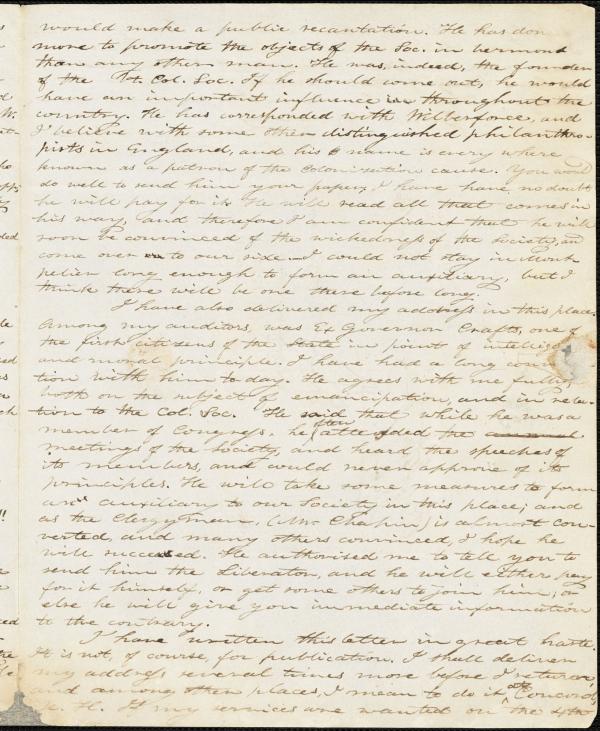 would make a public recantation. He has don
more to promote the objects of the Soc. in vermond
than any other man. He was, indeed, the founder
of the Vt. Col. Soc. If he should come out, he would
have an important influence in throughout the
country. He has corresponded with Wilberforce, and
I believe with some other distinguished philanthro-
pists in England, and his name is every where
known as a patron of the Colonization cause. You would
do well to send him your paper, I have have no doubt
he will pay for it. He will read all that comes in
his way, and therefore I am confident that he will
soon be convinced of the wickedness of the Society, and
come over to our side. I could not stay in Mont-
pelier long enough to form an auxiliary, but I
think there will be one there before long.
I have also delivered my address in this place.
Among my auditors, was Ex Governor Crafts, one of
the first citizens of the State in point of intellige
and moral principle. I have had a long conv
tion with him to day. He agrees with me fully,
both on the subject of emancipation, and in rela-
tion to the Col. Soc. He said that while he was a
member of Congress, he often attended the annual
meetings of the Society, and heard the speeches of
its members, and could never approve of its
principles. He will take some measures to form
an auxiliary to our Society in this place; and
as the Clergyman, (Mr. Chapin) is almost con-
verted, and many others convinced, I hope he
will succeed. He authorised me to tell you to
send him the Liberator, and he will either pay
for it himself, or get some others to join him; or
else he will give you immediate information
to the contrary.
I have written this letter in great haste.
It is not, of course, for publication. I shall deliver
my address several times more before I return,
and among other places, I mean to do it at Concord,
N. H. If my services are wanted on the 4th